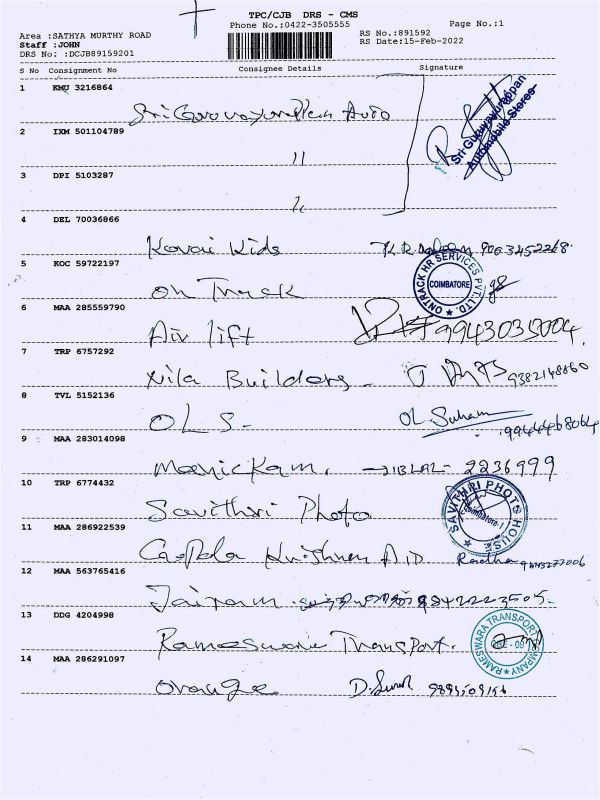 TPC/CJB DRS - CMS
Phone No.:0422-3505555 Page No.:1
Area :SATHYA MURTHY ROAD RS No.:891592
Staff :JOHN RS Date:15-Feb-2022
DRS No: :DCJB89159201
S No Consignment No Consignee Details Signature
1 KMU 3216864
Sri Guruvayurappan Auto
Sri Guruvayurappan
Automobile Stores
2 IXM 501104789
11
3 DPI 5103287
4 DEL 70036866
Kovai Kids
5 KOC 59722197
On Track
ONTRACK HR SERVICES PVT. LTD.
COIMBATORE
6 MAA 285559790
Air lift 9943035004
7 TRP 6757292
Nila Builders 9382148860
8 TVL 5152136
OLS
9 MAA 283014098
Manickam. 2236999
10 TRP 6774432
Savithri Photo
SAVITHRI PHOTO HOUSE
Coimbatore-1
11 MAA 286922539
Gopala Krishnan AID Radha
12 MAA 563765416
Jairam
13 DDG 4204998
Rameswara Transport.
RAMESWARA TRANSPORT COMPANY
14 MAA 286291097
Orange D. Suresh